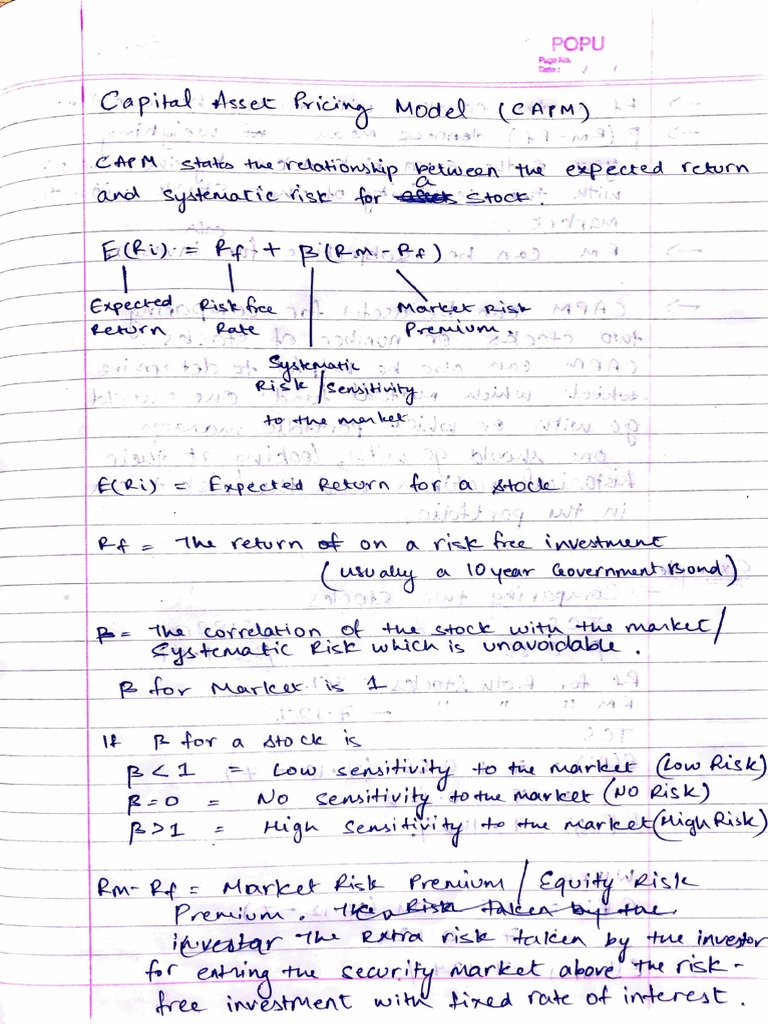 POPU
Page No.
Date: / /
Capital Asset Pricing Model (CAPM)
CAPM states the relationship between the expected return
and systematic risk for a stock.
E(Ri) = Rf + β(Rm-Rf)
Expected Return
Risk free Rate
Market Risk Premium.
Systematic Risk / Sensitivity to the market
E(Ri) = Expected Return for a stock
Rf = The return of on a risk free investment
(usually a 10 year Government Bond)
β = The correlation of the stock with the market/
Systematic Risk which is unavoidable.
β for Market is 1
If β for a stock is
β < 1 = Low sensitivity to the market (Low Risk)
β = 0 = No sensitivity to the market (NO Risk)
β > 1 = High sensitivity to the market (High Risk)
Rm-Rf = Market Risk Premium / Equity Risk
Premium. The Risk taken by the
investor The Extra risk taken by the investor
for entring the security market above the risk-
free investment with fixed rate of interest.